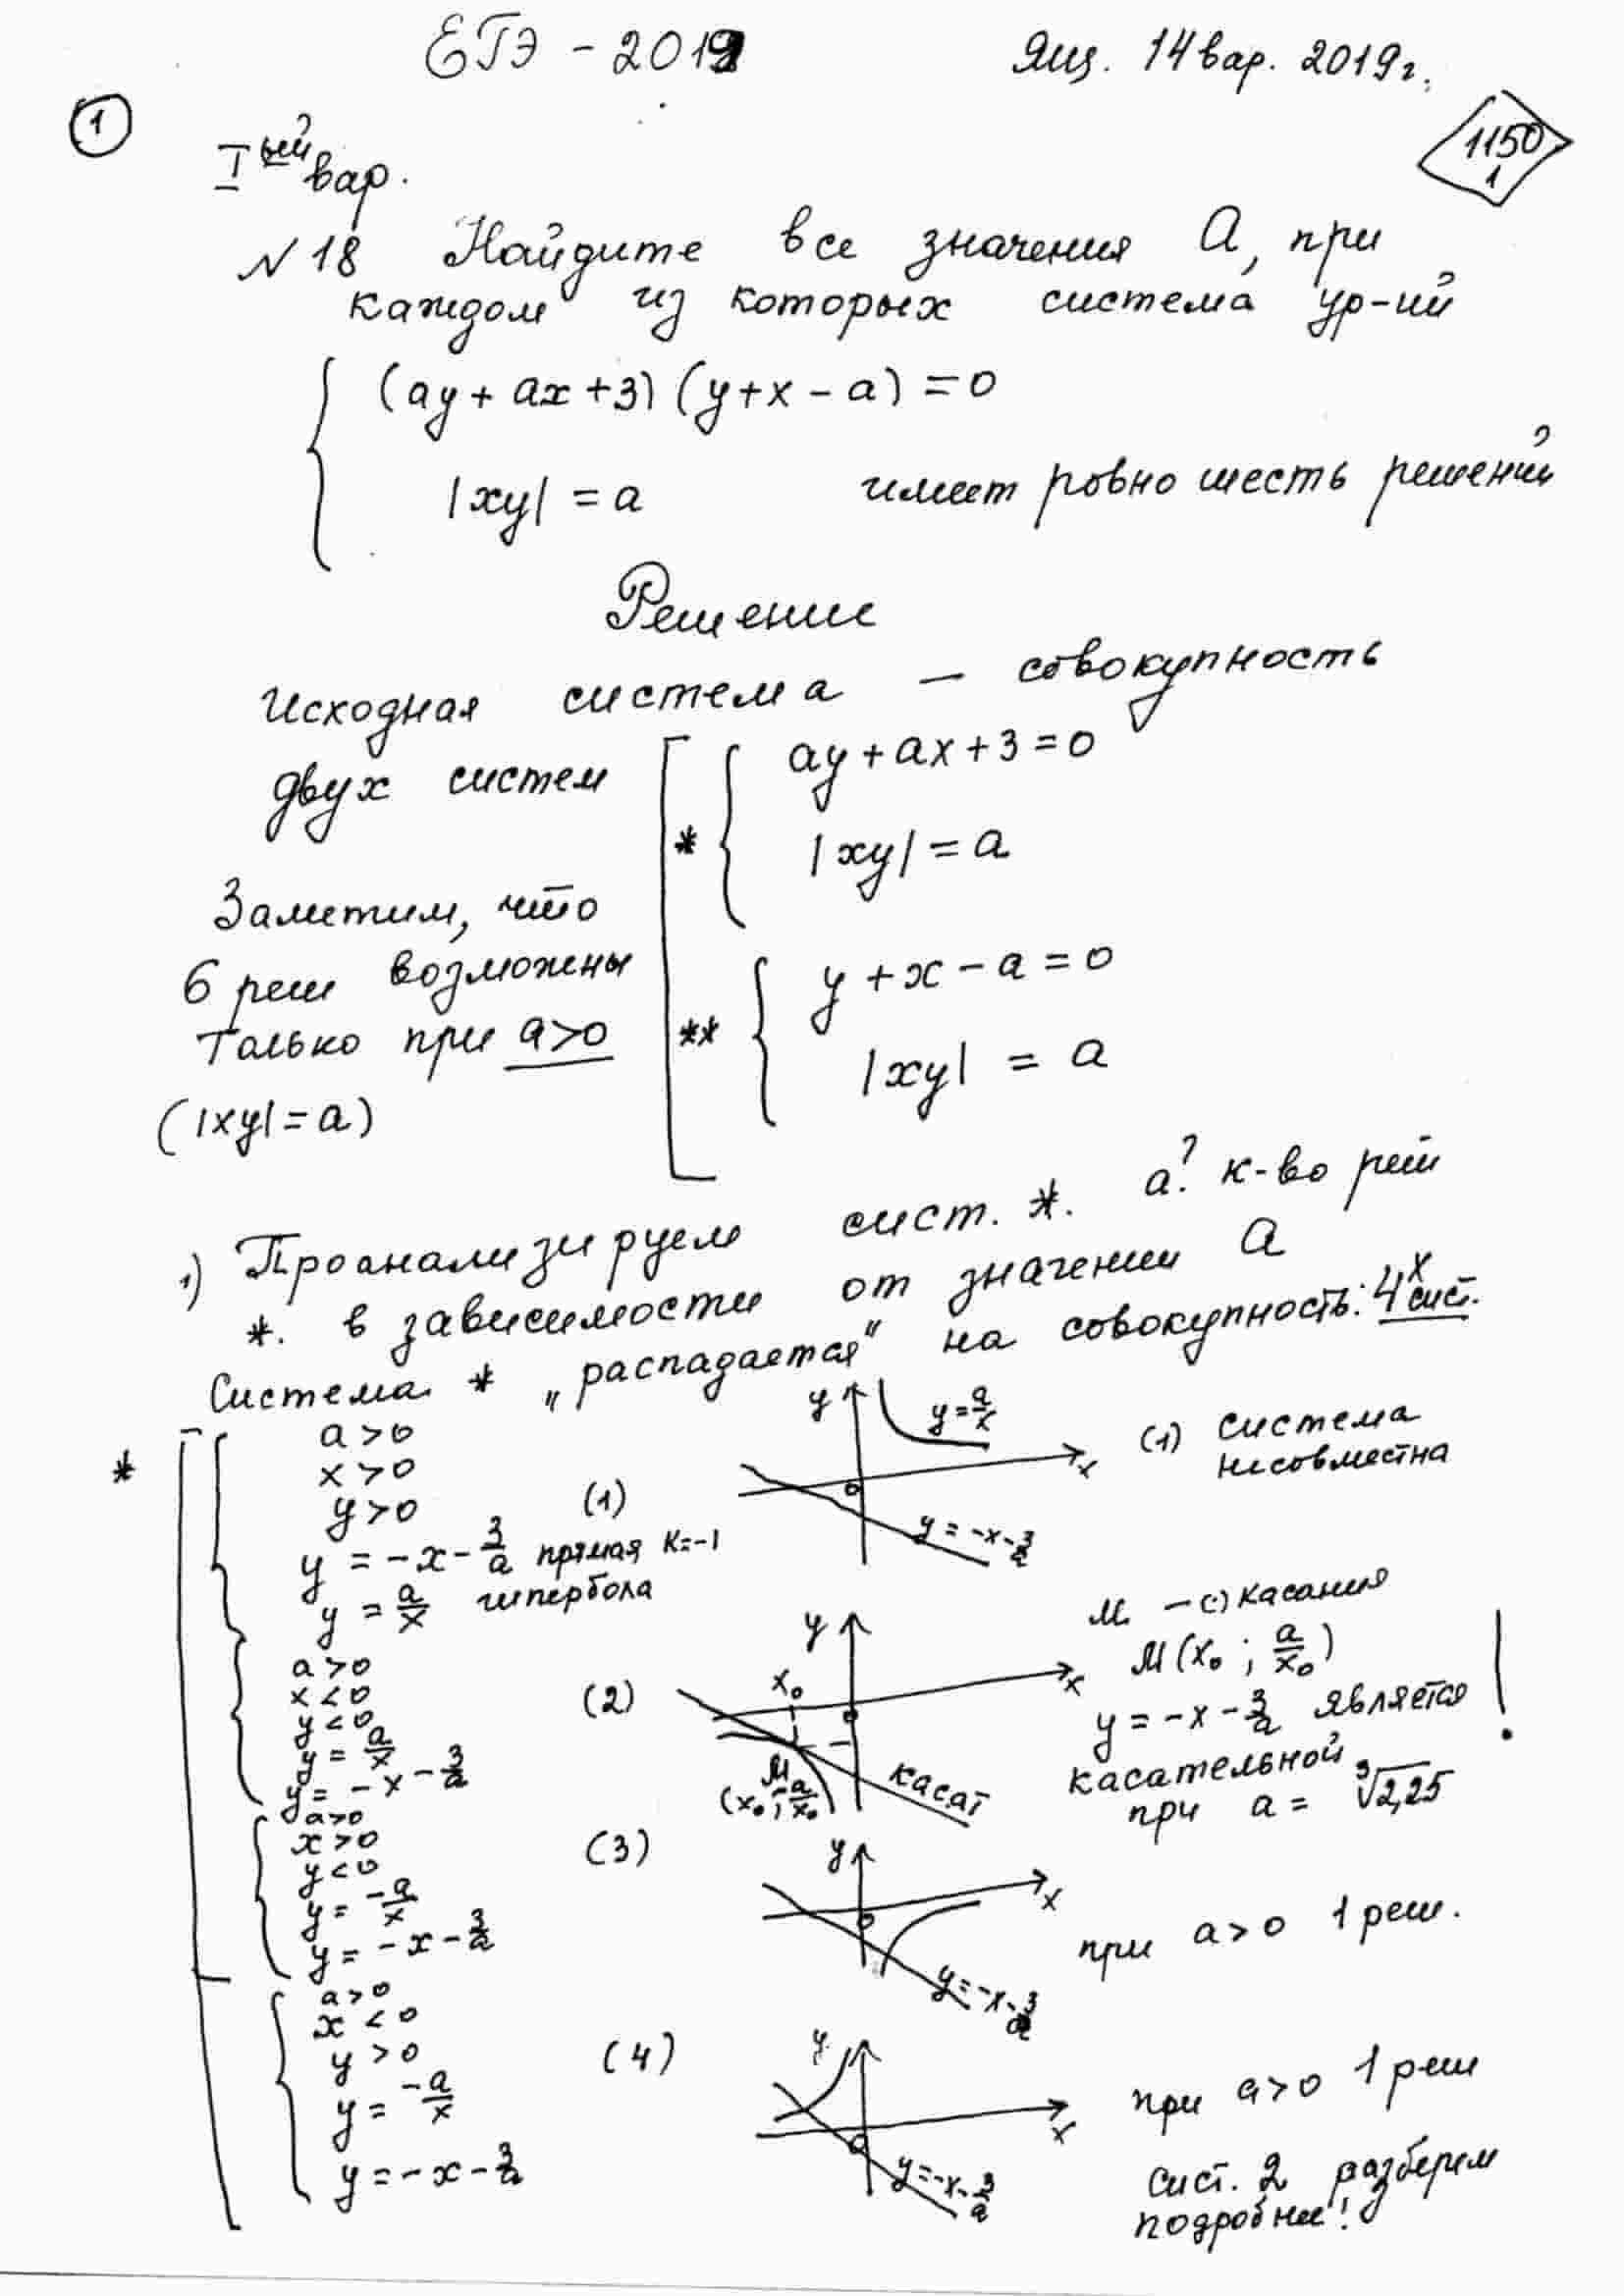 ЕГЭ - 2019
Ящ. 14 вар. 2019г.
1
1150
1
Iый вар.
N 18 Найдите все значения a, при
каждом из которых система ур-ий
(ay + ax + 3) (y + x - a) = 0
|xy| = a имеет ровно шесть решений
Решение
Исходная система — совокупность
двух систем
* ay + ax + 3 = 0
|xy| = a
Заметим, что
6 реш возможны
только при a>0
(|xy| = a)
** y + x - a = 0
|xy| = a
1) Проанализируем сист. *. a? к-во реш
*. в зависимости от значений a
Система * "распадается" на совокупность: 4х сист.
* a > 0
x > 0
y > 0
(1)
y = -x - 3/a прямая K=-1
y = a/x гипербола
y
y = a/x
x
0
y = -x - 3/a
(1) система
несовместна
a > 0
x < 0
y < 0
y = a/x
y = -x - 3/a
(2)
y
x
x₀
0
M
(x₀; a/x₀)
касат
M. — (·) касания
M (x₀ ; a/x₀)
y = -x - 3/a является
касательной
при a = ∛2,25
!
a>0
x > 0
y < 0
y = -a/x
y = -x - 3/a
(3)
y
x
0
y = -x - 3/a
при a > 0 1 реш.
a > 0
x < 0
y > 0
y = -a/x
y = -x - 3/a
(4)
y
x
0
y = -x - 3/a
при a > 0 1 реш
Сист. 2 разберем
подробнее!